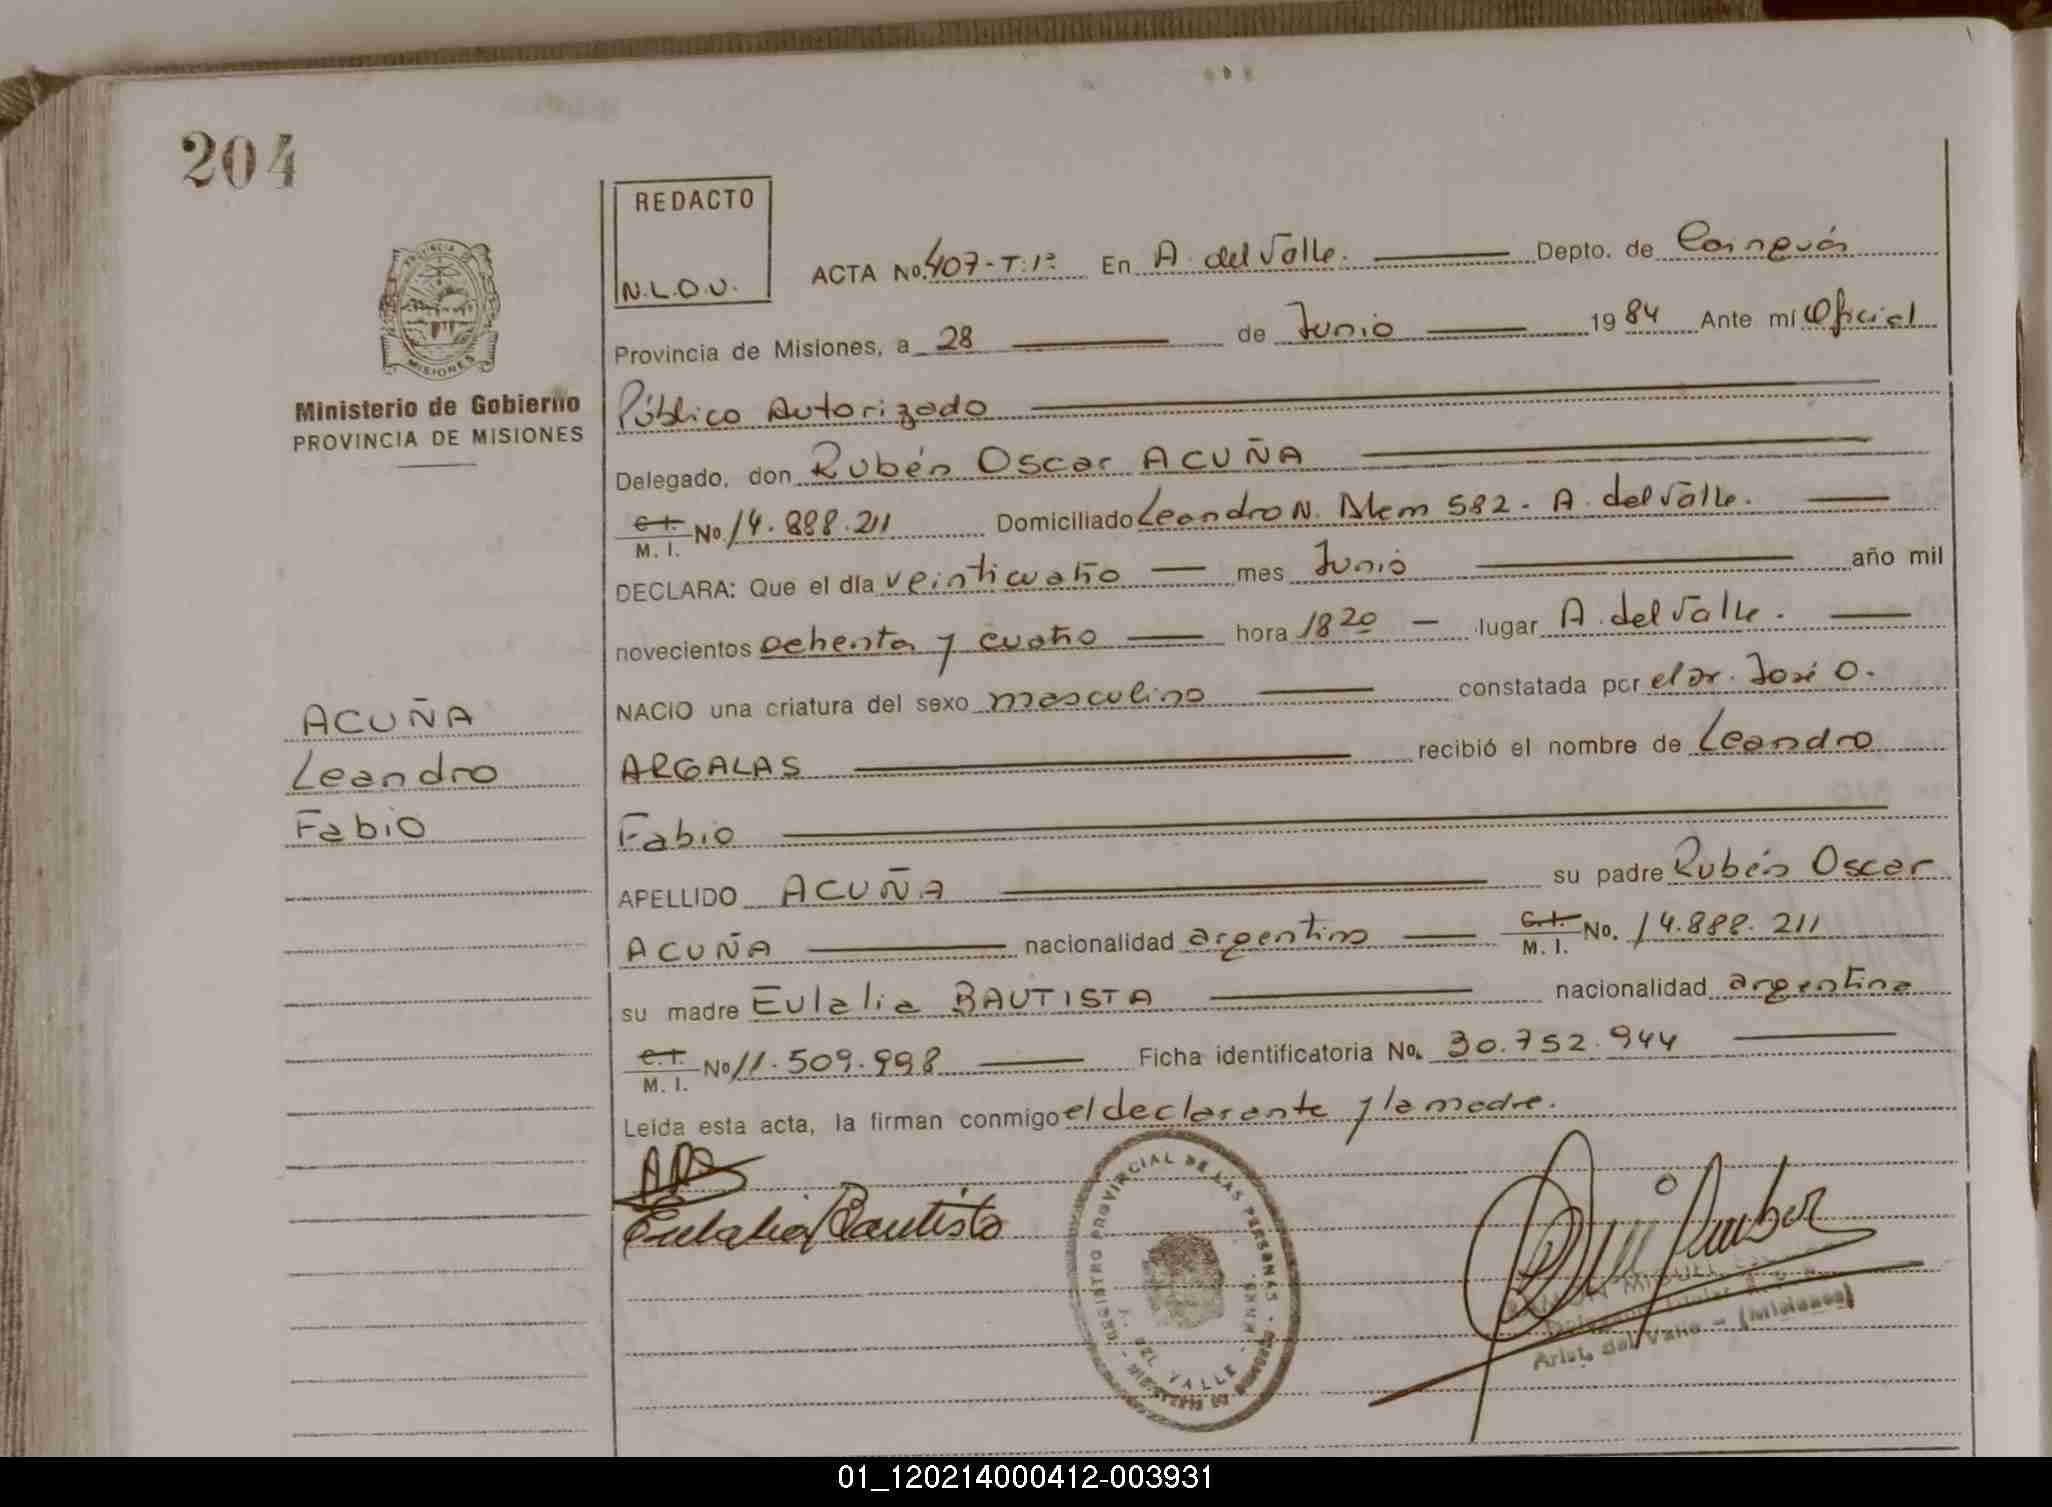 204
REDACTO
N.L.O.U.
PROVINCIA DE
MISIONES
Ministerio de Gobierno
PROVINCIA DE MISIONES
ACUÑA
Leandro
Fabio
ACTA No. 407-T:1º En A. del Valle. Depto. de Cainguás
Provincia de Misiones, a 28 de Junio 19 84 Ante mí Oficial
Público Autorizado
Delegado, don Rubén Oscar ACUÑA
C.I. M. I. No 14.888.211 Domiciliado Leandro N. Alem 582 - A. del Valle.
DECLARA: Que el día veinticuatro mes Junio año mil
novecientos ochenta y cuatro hora 18 20 lugar A. del Valle.
NACIO una criatura del sexo masculino constatada por el Dr. José O.
ARGALAS recibió el nombre de Leandro
Fabio
APELLIDO ACUÑA su padre Rubén Oscar
ACUÑA nacionalidad argentino C.I. M. I. No. 14.888.211
su madre Eulalia BAUTISTA nacionalidad argentina
C.I. M. I. No 11.509.998 Ficha identificatoria No. 30.752.944
Leída esta acta, la firman conmigo el declarante y la madre.
Eulalia Bautista
REGISTRO PROVINCIAL DE LAS PERSONAS
A. DEL VALLE
Arist. del Valle - (Misiones)
01_120214000412-003931